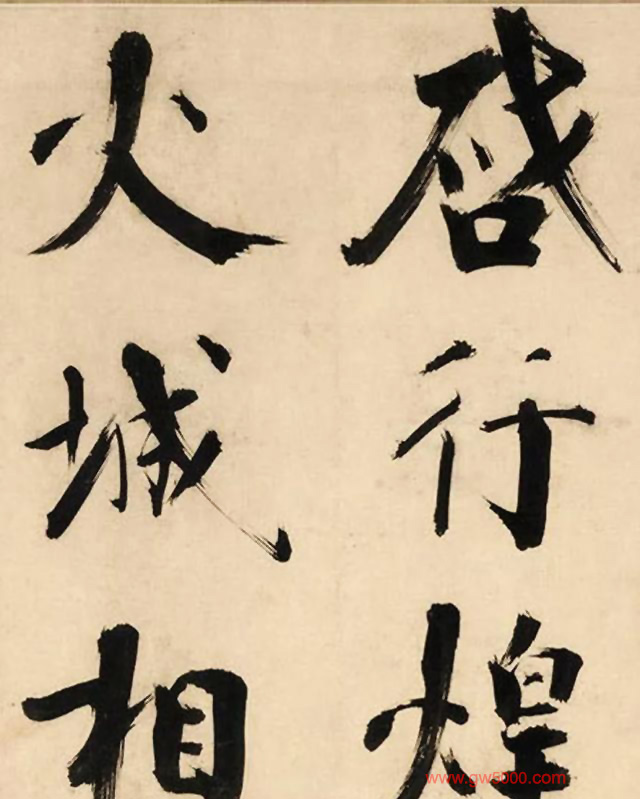 啓行煌
火城相
www.gw5000.com